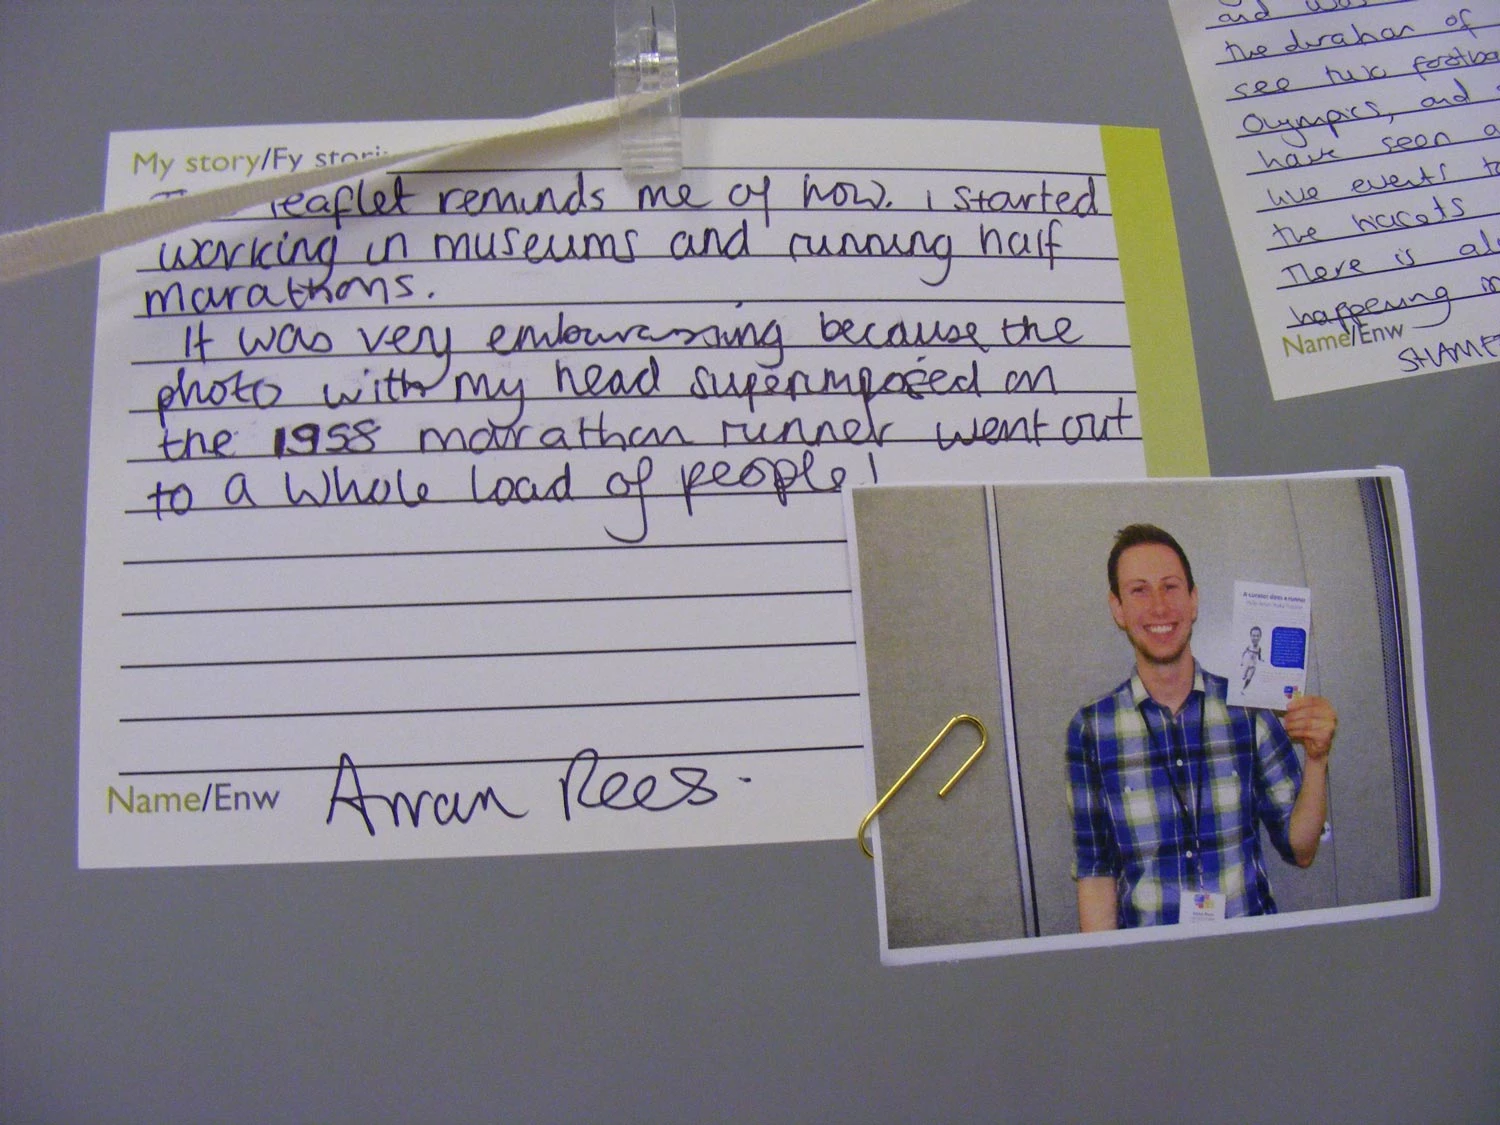 My story/Fy stori
leaflet reminds me of how. I started
working in museums and running half
marathons.
It was very embarrassing because the
photo with my head superimposed on
the 1958 marathon runner went out
to a whole load of people!
Name/Enw Arran Rees.
and was
the duration of
see two footba
Olympics, and
have seen a
live events to
the tickets
There is al
happening in
Name/Enw
SHAME
A curator does a runner